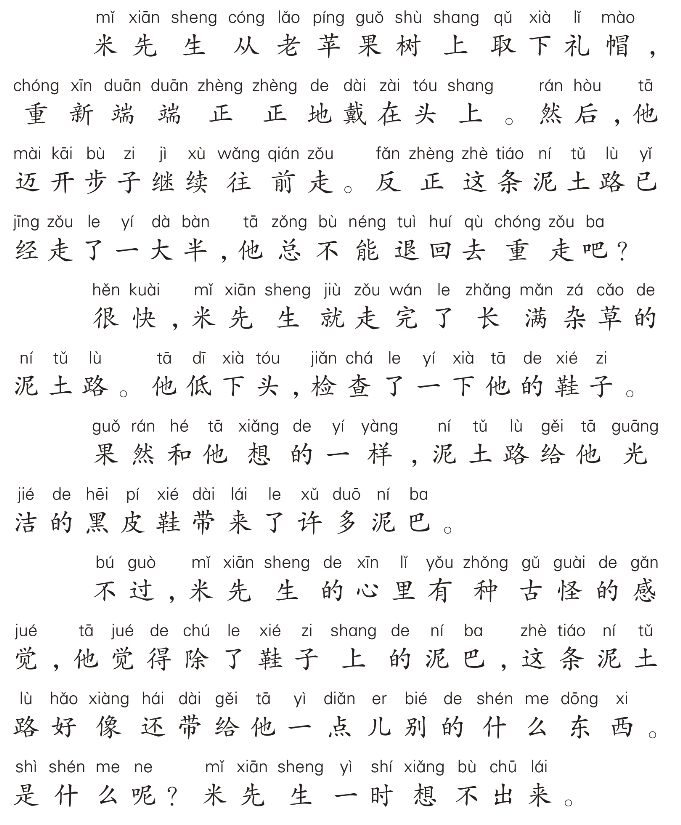 mǐ xiān sheng cóng lǎo píng guǒ shù shang qǔ xià lǐ mào
米先生从老苹果树上取下礼帽，
chóng xīn duān duān zhèng zhèng de dài zài tóu shang rán hòu tā
重新端端正正地戴在头上。然后，他
mài kāi bù zi jì xù wǎng qián zǒu fǎn zhèng zhè tiáo ní tǔ lù yǐ
迈开步子继续往前走。反正这条泥土路已
jīng zǒu le yí dà bàn tā zǒng bù néng tuì huí qù chóng zǒu ba
经走了一大半，他总不能退回去重走吧？
hěn kuài mǐ xiān sheng jiù zǒu wán le zhǎng mǎn zá cǎo de
很快，米先生就走完了长满杂草的
ní tǔ lù tā dī xià tóu jiǎn chá le yí xià tā de xié zi
泥土路。他低下头，检查了一下他的鞋子。
guǒ rán hé tā xiǎng de yí yàng ní tǔ lù gěi tā guāng
果然和他想的一样，泥土路给他光
jié de hēi pí xié dài lái le xǔ duō ní ba
洁的黑皮鞋带来了许多泥巴。
bú guò mǐ xiān sheng de xīn lǐ yǒu zhǒng gǔ guài de gǎn
不过，米先生的心里有种古怪的感
jué tā jué de chú le xié zi shang de ní ba zhè tiáo ní tǔ
觉，他觉得除了鞋子上的泥巴，这条泥土
lù hǎo xiàng hái dài gěi tā yì diǎn er bié de shén me dōng xi
路好像还带给他一点儿别的什么东西。
shì shén me ne mǐ xiān sheng yì shí xiǎng bù chū lái
是什么呢？米先生一时想不出来。